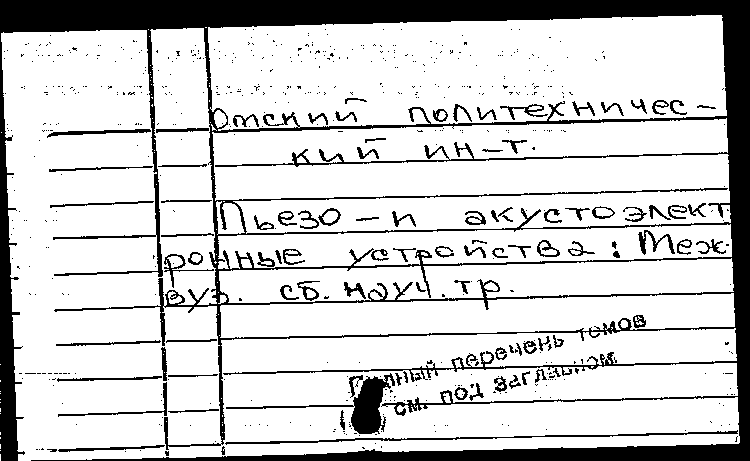 Омский политехничес-
кий ин-т.
Пьезо-и акустоэлект
ронные устройства: Меж
вуз. сб. науч. тр.
Полный перечень томов
см. под заглавном